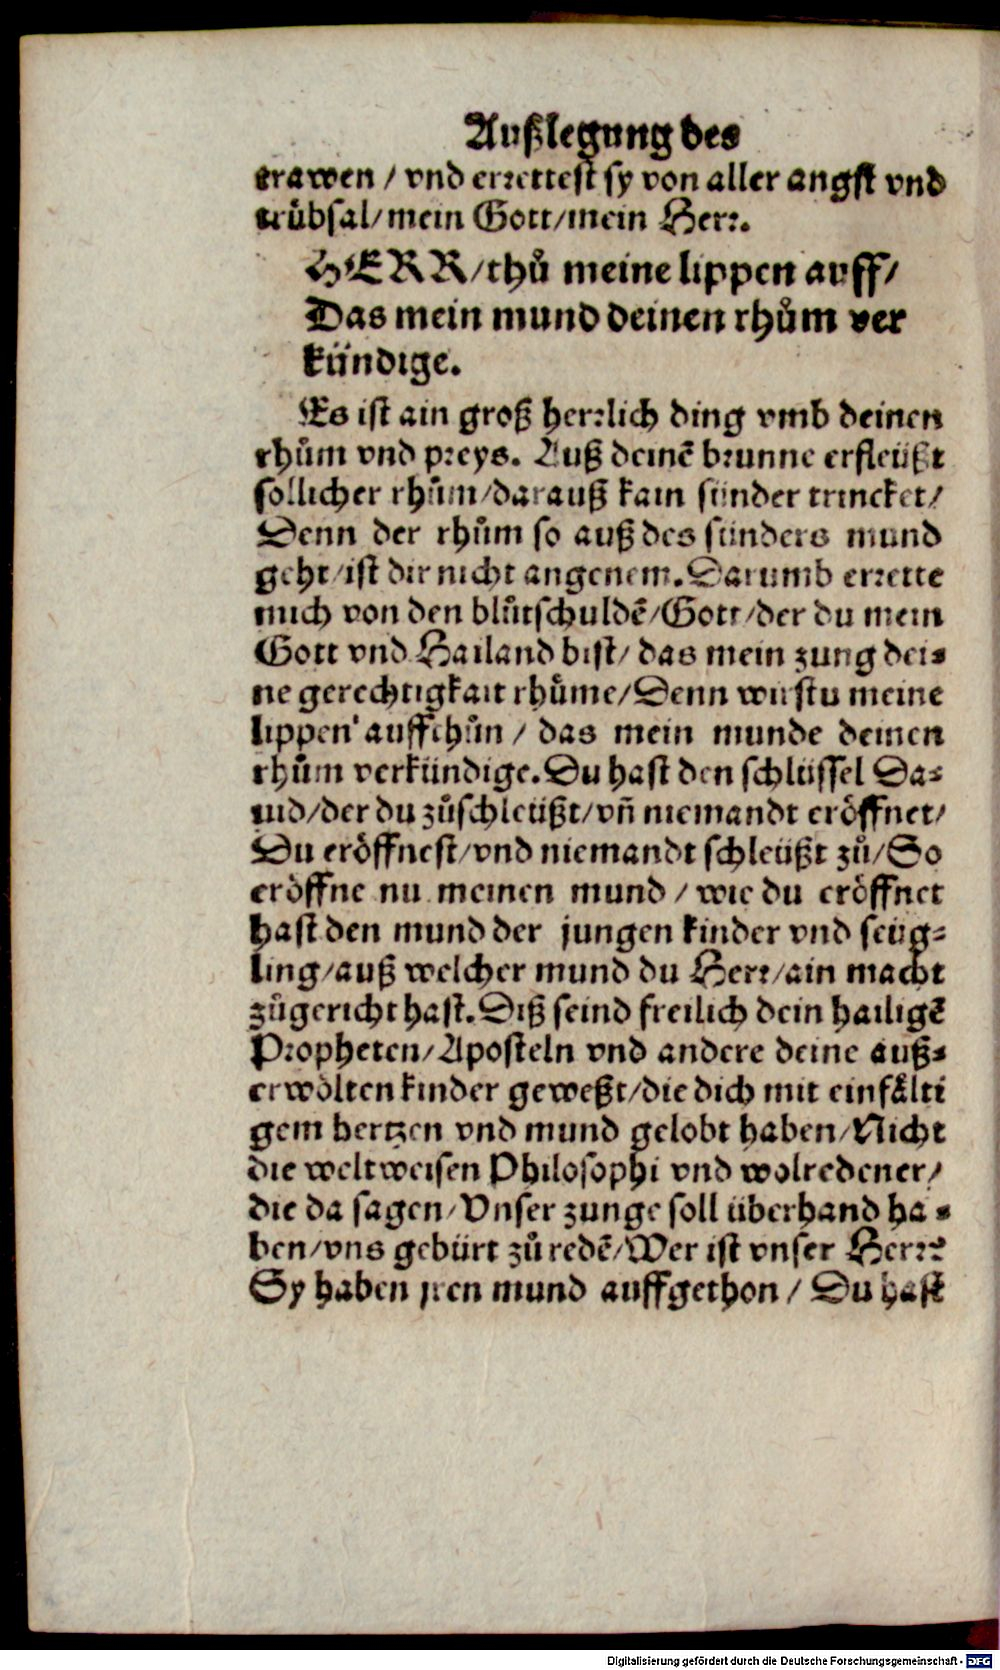 Außlegung des
trawen / vnd errettest sy von aller angst vnd
trůbsal/mein Gott/mein Herr.
HERR/thů meine lippen auff/
Das mein mund deinen rhům ver
kündige.
Es ist ain groß herrlich ding vmb deinen
rhům vnd preys. Auß deinẽ brunne erfleüßt
sollicher rhům/darauß kain sünder trincket/
Denn der rhům so auß des sünders mund
geht/ist dir nicht angenem. Darumb errette
mich von den blůtschuldẽ/Gott/der du mein
Gott vnd Hailand bist/das mein zung dei-
ne gerechtigkait rhůme/Denn wirstu meine
lippen auffthůn / das mein munde deinen
rhům verkündige. Du hast den schlüssel Da-
uid/der du zůschleüßt/vñ niemandt eröffnet/
Du eröffnest/vnd niemandt schleüßt zů/So
eröffne nu meinen mund / wie du eröffnet
hast den mund der jungen kinder vnd seüg-
ling/auß welcher mund du Herr/ain macht
zůgericht hast. Diß seind freilich dein hailigẽ
Propheten/Aposteln vnd andere deine auß-
erwölten kinder geweßt/die dich mit einfälti
gem hertzen vnd mund gelobt haben/Nicht
die weltweisen Philosophi vnd wolredener/
die da sagen/Vnser zunge soll überhand ha-
ben/vns gebürt zů redẽ/Wer ist vnser Herr?
Sy haben jren mund auffgethon / Du hast
Digitalisierung gefördert durch die Deutsche Forschungsgemeinschaft - DFG